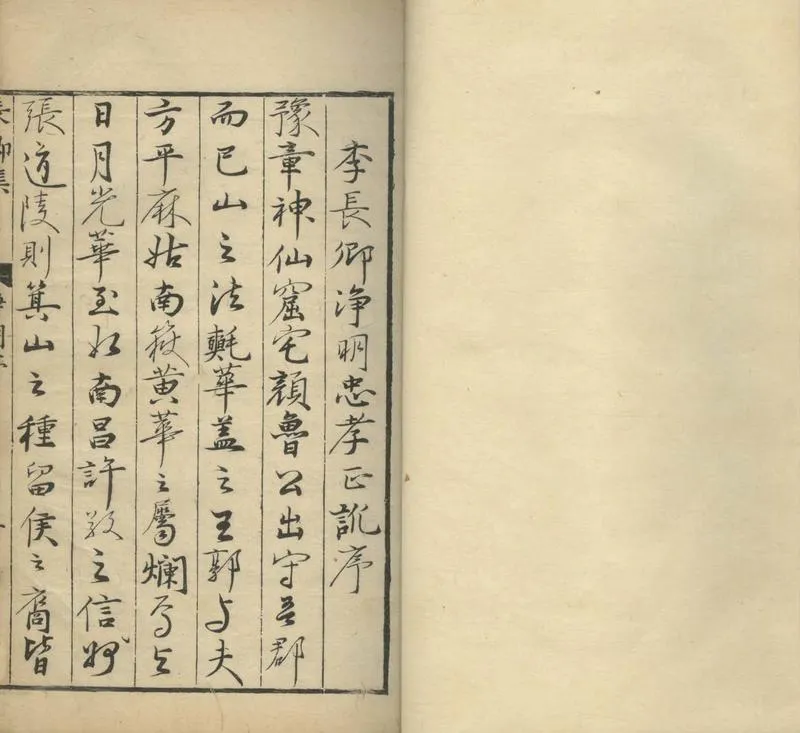 李長卿净明忠孝正訛序
豫章神仙窟宅顏魯公出守吾郡
而巴山之法甎華盖之王郭与夫
方平麻姑南嶽黄華之屬爛焉与
日月光華至如南昌許敬之信州
張道陵則箕山之種留侯之裔皆